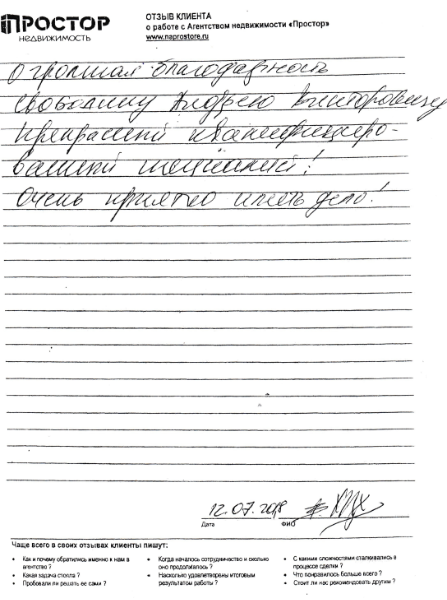 ПРОСТОР
НЕДВИЖИМОСТЬ
ОТЗЫВ КЛИЕНТА
о работе с Агентством недвижимости «Простор»
www.naprostore.ru
Огромная благодарность
Андрею Викторовичу
прекрасный квалифициро-
ванный специалист!
Очень приятно иметь дело!
12.07.2018
Дата
ФИО
Чаще всего в своих отзывах клиенты пишут:
• Как и почему обратились именно к нам в агентство ?
• Какая задача стояла ?
• Пробовали ли решать ее сами ?
• Когда началось сотрудничество и сколько оно продолжалось ?
• Насколько удовлетворены итоговым результатом работы ?
• С какими сложностями сталкивались в процессе сделки ?
• Что понравилось больше всего ?
• Стоит ли нас рекомендовать другим ?